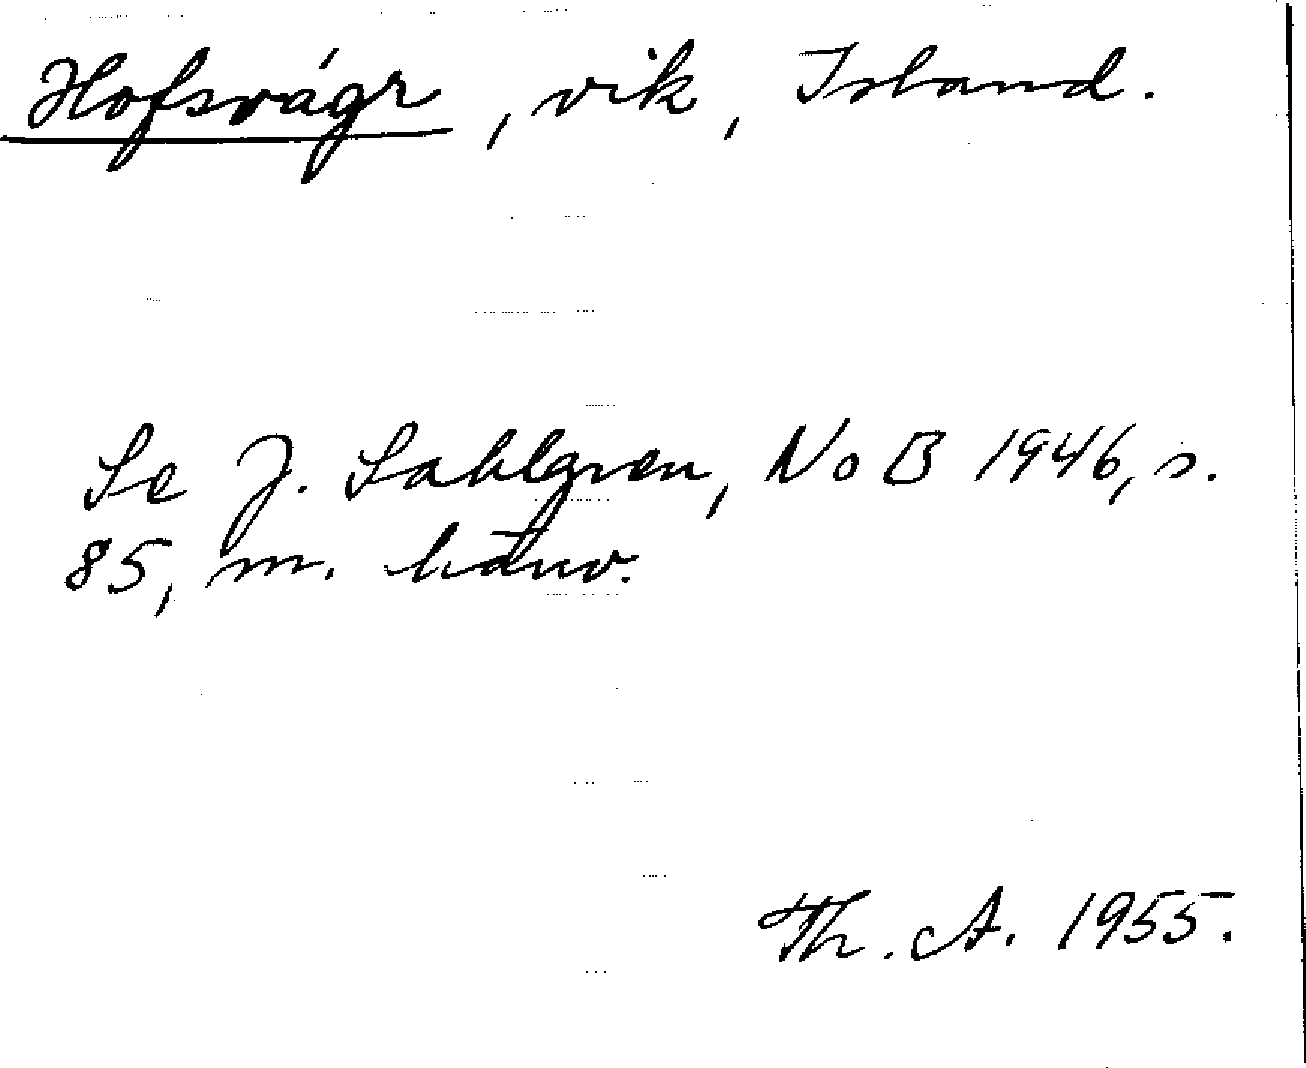 Hofsvágr, vik, Island.
Se J. Sahlgren, NoB 1946, s.
85, m. hänv.
Th. A. 1955.